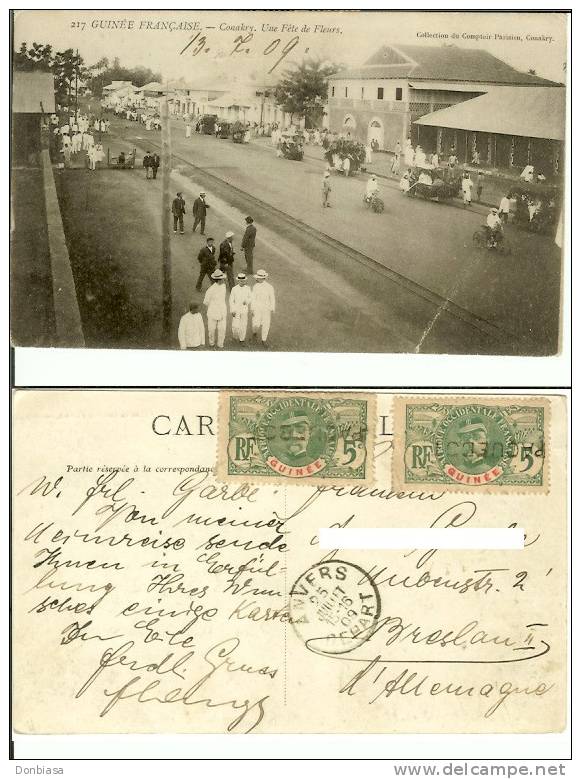 217 GUINÉE FRANÇAISE. — Conakry. Une Fête de Fleurs.
Collection du Comptoir Parisien, Conakry.
13. 7. 09.
CAR L
Partie réservée à la correspondance
AFRIQUE OCCIDENTALE FRANÇAISE
RF 5c
GUINÉE
AFRIQUE OCCIDENTALE FRANÇAISE
RF 5c
GUINÉE
PAQUEBOT
W. frl. Garbe.
Von meiner
Heimreise sende
Ihnen in Erfül-
lung Ihres Wun
sches einige Karten
In Eile
frdl. Gruss
Fräulein
2
Breslau II
d'Allemagne
ANVERS
DEPART
25
AOUT
09
Donbiasa
http://www.delcampe.net